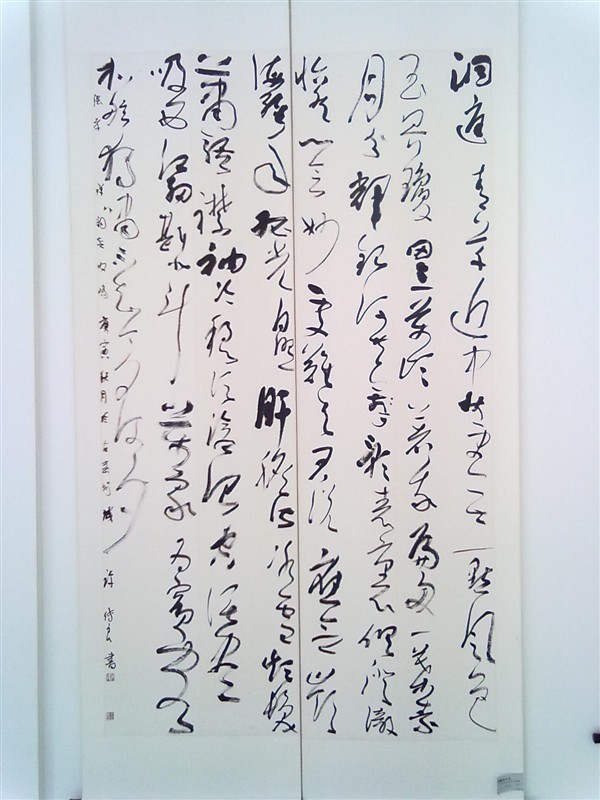 洞庭青草近中秋更无一点风色
玉界琼田三万顷著我扁舟一叶素
月分辉银河共影表里俱澄澈
悠然心会妙处难与君说应念岭
海经年孤光自照肝胆皆冰雪短发
萧疏襟袖冷稳泛沧溟空阔尽
吸西江细斟北斗万象为宾客
扣舷独啸不知今夕何夕
庚寅秋月於古 城 许 书